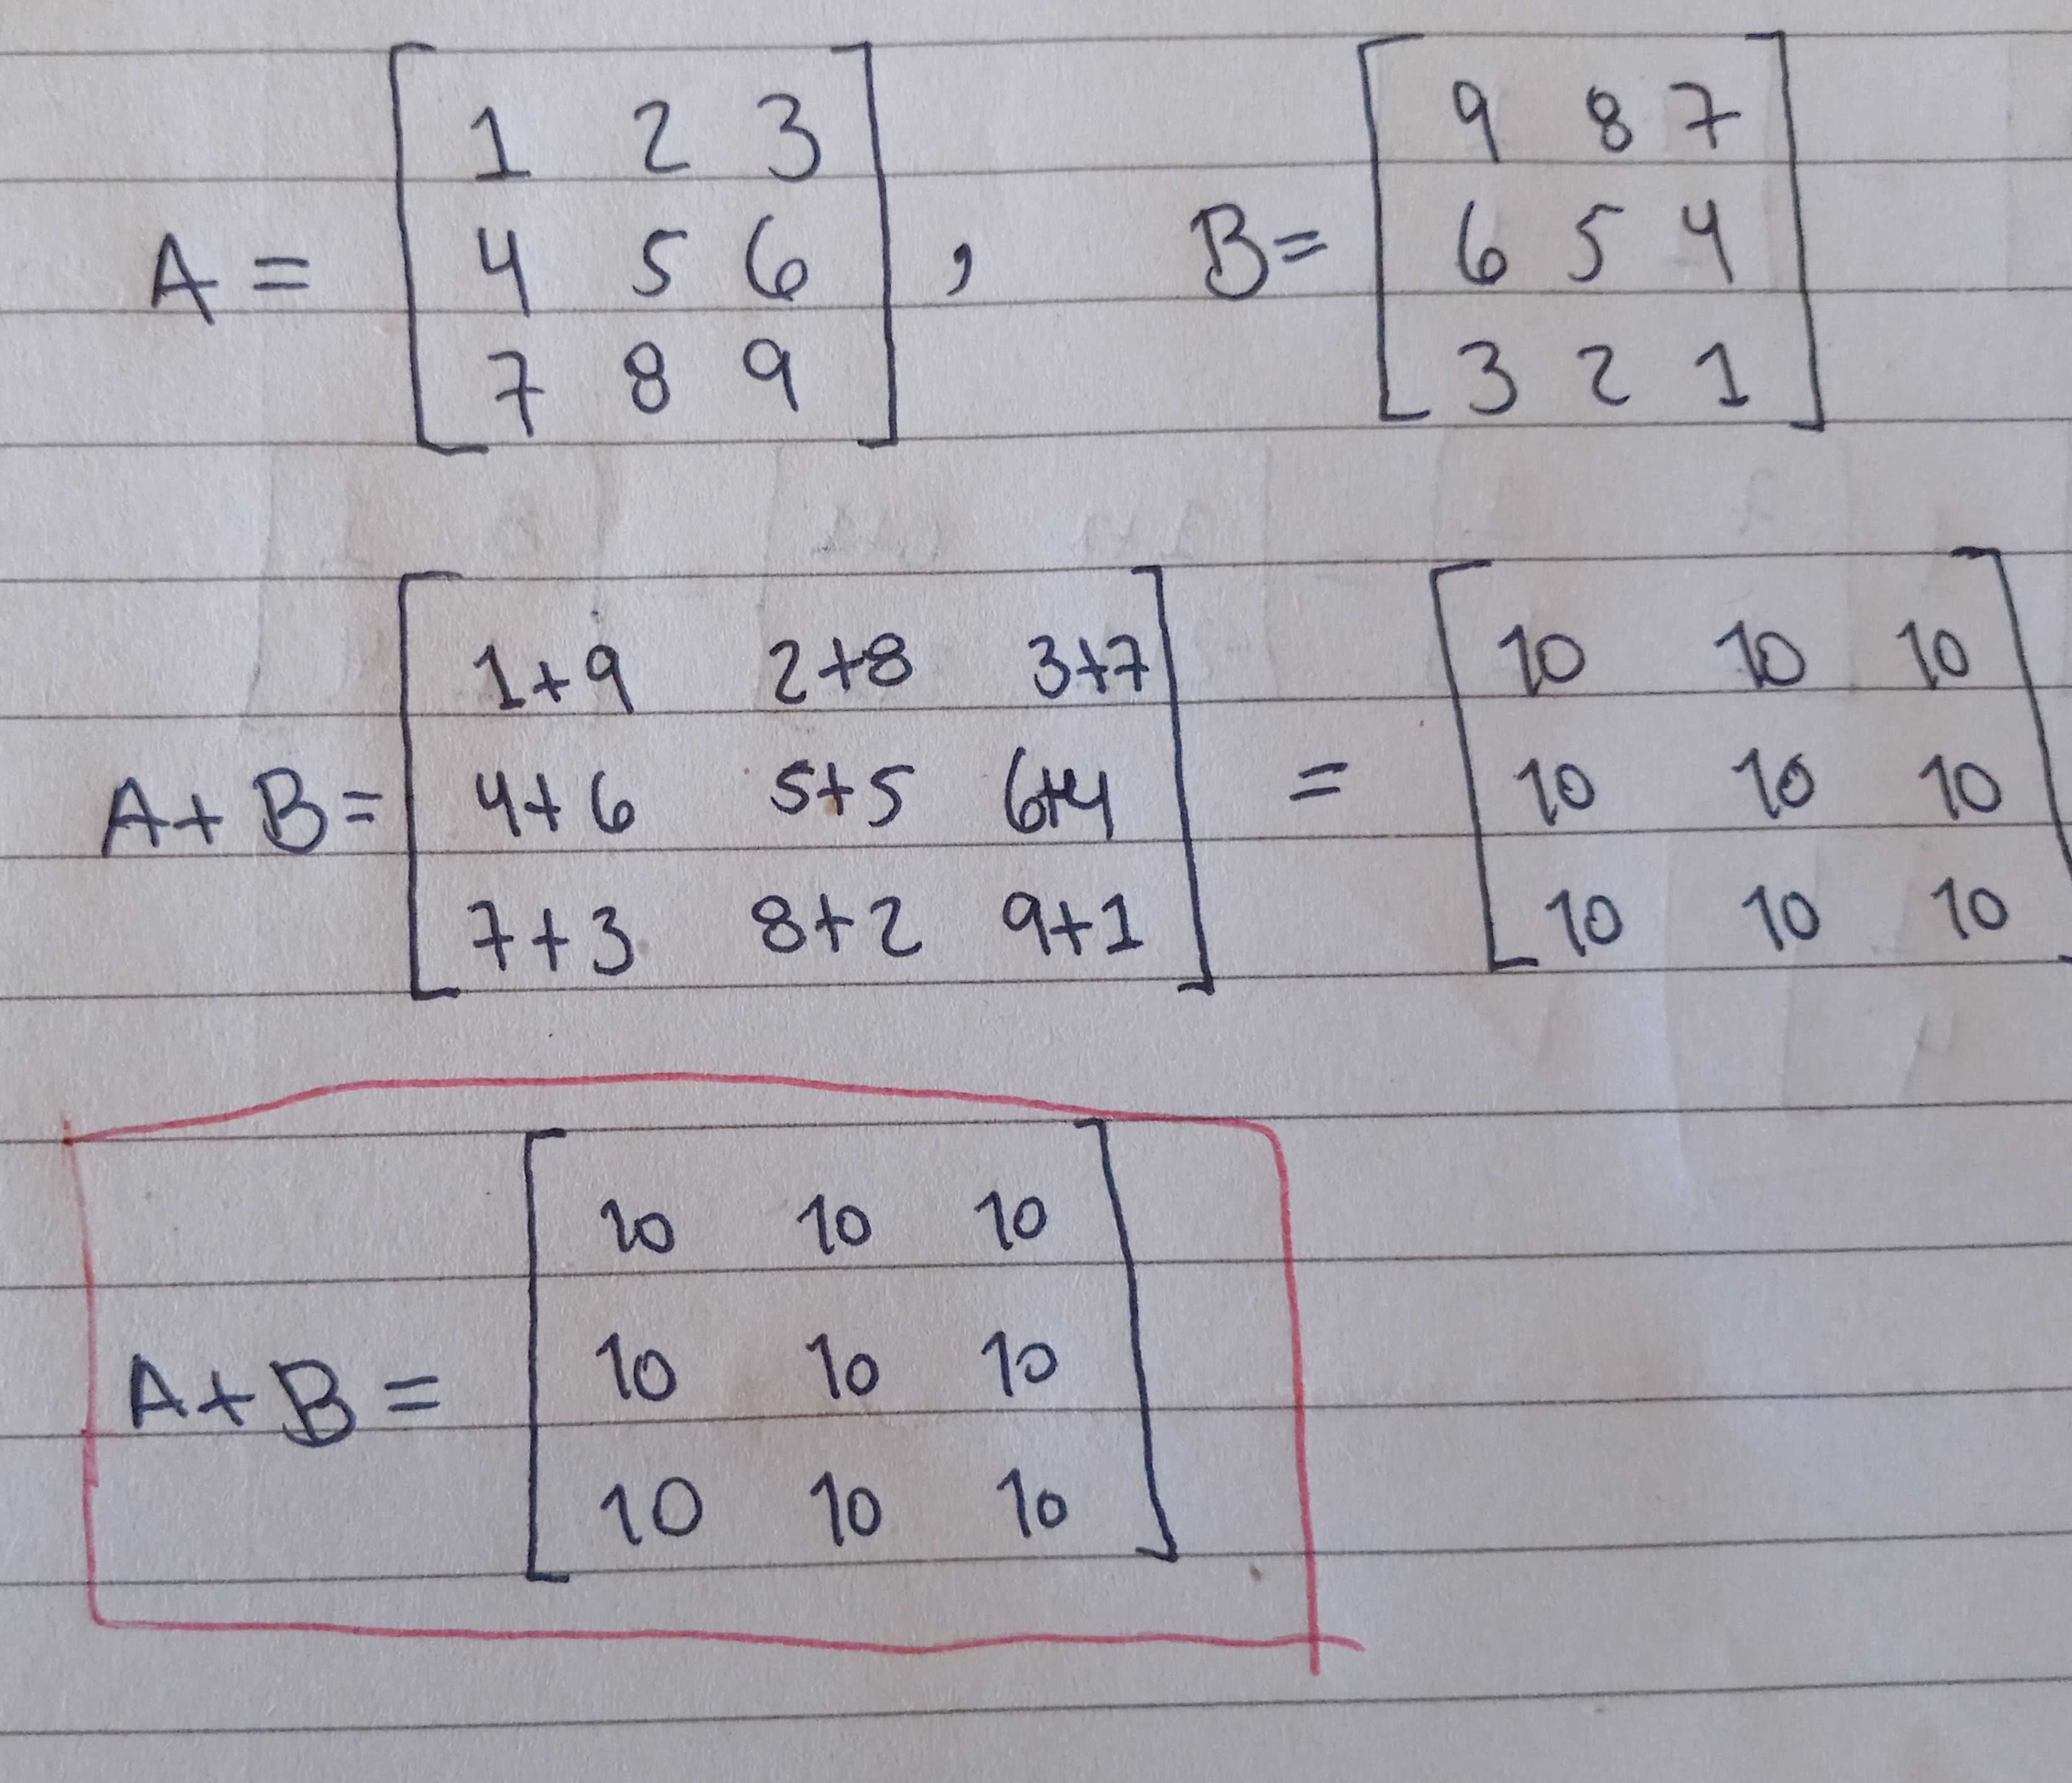 A = [ 1 2 3 ; 4 5 6 ; 7 8 9 ] , B = [ 9 8 7 ; 6 5 4 ; 3 2 1 ]
A + B = [ 1+9 2+8 3+7 ; 4+6 5+5 6+4 ; 7+3 8+2 9+1 ] = [ 10 10 10 ; 10 10 10 ; 10 10 10 ]
A + B = [ 10 10 10 ; 10 10 10 ; 10 10 10 ]